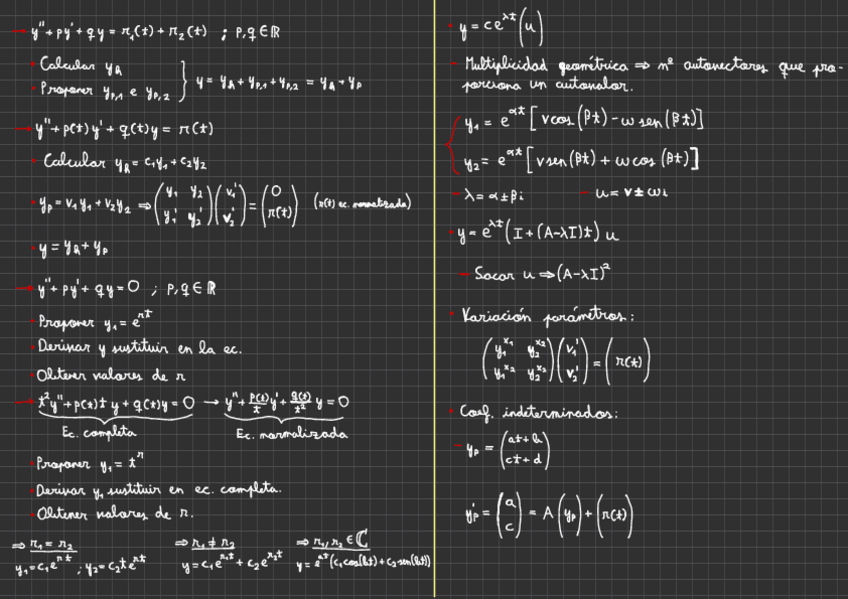 → y'' + py' + qy = r₁(t) + r₂(t) ; p,q ∈ ℝ
• Calcular y_h
• Proponer y_p,1 e y_p,2 } y = y_h + y_p,1 + y_p,2 = y_h + y_p
→ y'' + p(t)y' + q(t)y = r(t)
• Calcular y_h = c₁y₁ + c₂y₂
• y_p = v₁y₁ + v₂y₂ ⇒ (y₁ y₂ / y₁' y₂')(v₁' / v₂') = (0 / r(t)) (r(t) ec. normalizada)
• y = y_h + y_p
→ y'' + py' + qy = 0 ; p,q ∈ ℝ
• Proponer y₁ = e^(rt)
• Derivar y sustituir en la ec.
• Obtener valores de r
→ t²y'' + p(t)t y + q(t)y = 0 → y'' + p(t)/t y' + q(t)/t² y = 0
Ec. completa Ec. normalizada
• Proponer y₁ = t^r
• Derivar y, sustituir en ec. completa.
• Obtener valores de r.
⇒ r₁ = r₂ ⇒ r₁ ≠ r₂ ⇒ r₁, r₂ ∈ ℂ
y₁ = c₁e^(rt) ; y₂ = c₂te^(rt) y = c₁e^(r₁t) + c₂e^(r₂t) y = e^(at)(c₁cos(bt) + c₂sen(bt))
• y = ce^(λt)(u)
– Multiplicidad geométrica ⇒ nº autovectores que pro-
porciona un autovalor.
y₁ = e^(αt)[v cos(βt) – w sen(βt)]
y₂ = e^(αt)[v sen(βt) + w cos(βt)]
– λ = α ± βi – u = v ± wi
• y = e^(λt)(I + (A-λI)t) u
– Sacar u ⇒ (A-λI)²
• Variación parámetros:
(y₁^x₁ y₂^x₂ / y₁^x₂ y₂^x₂)(v₁' / v₂') = (r(t))
• Coef. indeterminados:
– y_p = (at + b / ct + d)
y_p' = (a / c) = A (y_p) + (r(t))